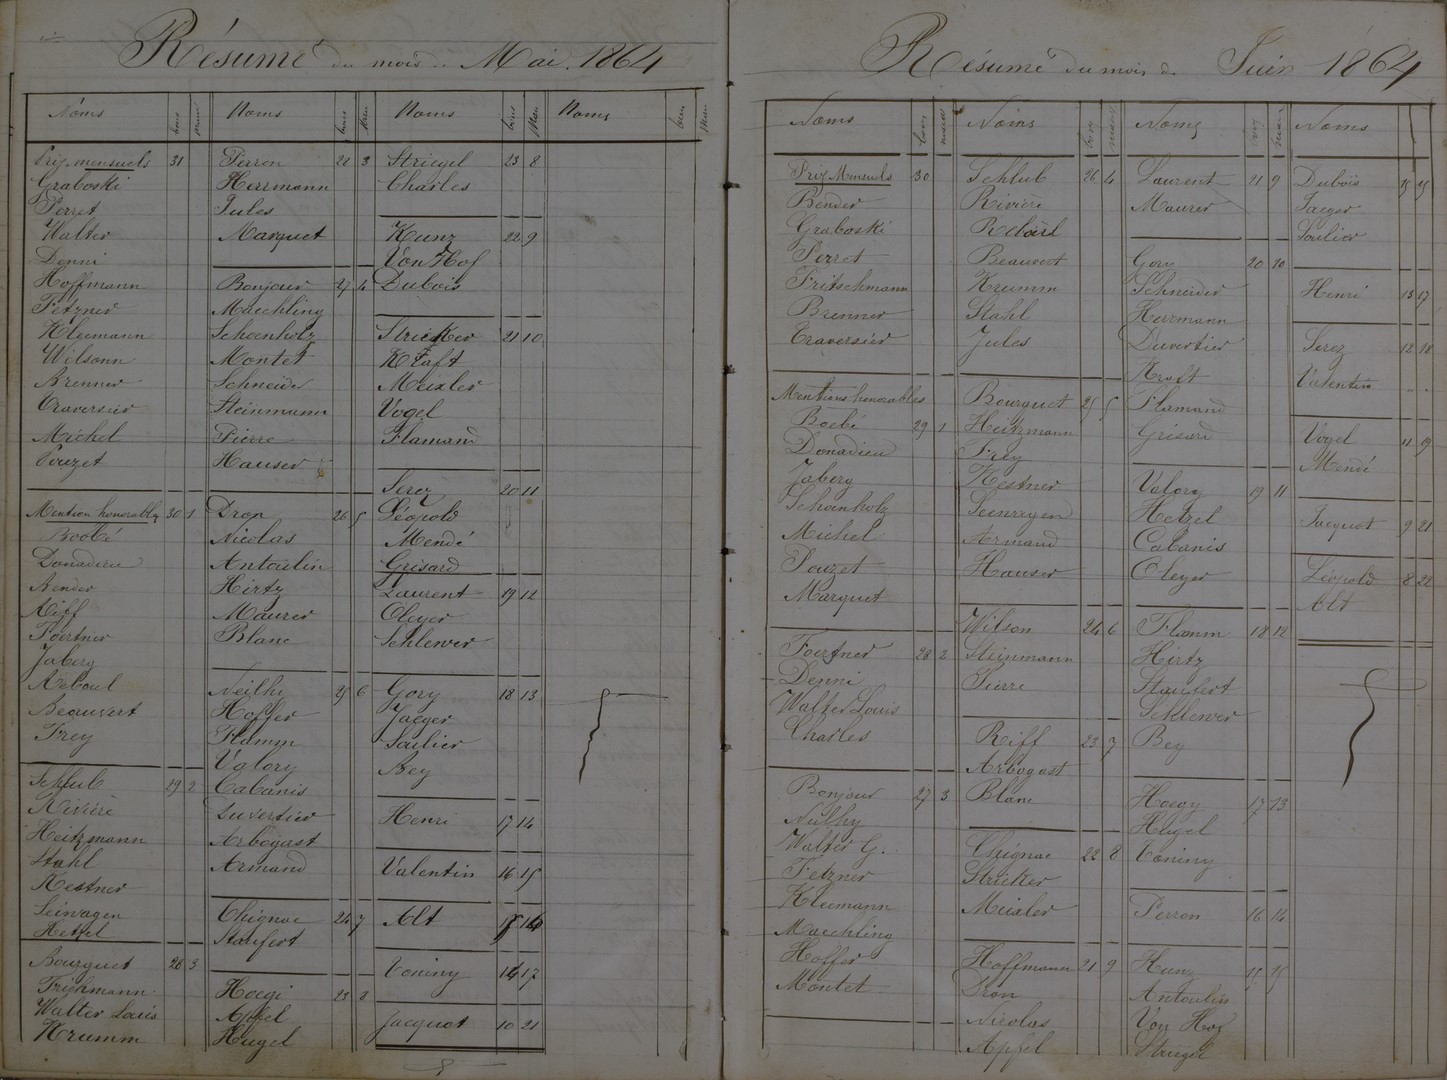 Résumé du mois de Mai 1864
Noms bons mau
Prix mensuels 31
Graboski
Perret
Walter
Denni
Hoffmann
Fetzner
Kleemann
Wilsonn
Brenner
Traversier
Michel
Pouzet
Mention honorables 30 1
Boobé
Donadieu
Bender
Riff
Poertner
Jaberg
Reboul
Beauvert
Frey
Schlub 29 2
Rivière
Heitzmann
Stahl
Kestner
Seinvagen
Hetzel
Bourguet 28 3
Frichmann
Walter Louis
Krumm
Noms bons mau
Perron 28 3
Herrmann
Jules
Marquet
Bonjour 27 4
Maechling
Schoenholz
Montet
Schneider
Steinmann
Pierre
Hauser
Dron 26 5
Nicolas
Antoulin
Hirtz
Maurer
Blanc
Neilhy 25 6
Hoffer
Flamm
Valory
Cabanis
Duvertier
Arbogast
Armand
Chignac 24 7
Staufert
Hoegi 23 8
Apfel
Hugel
Noms bons Mau
Striegel 23 8
Charles
Kunz 22 9
Von Hof
Dubois
Stricker 21 10
Kraft
Meixler
Vogel
Flamand
Serez 20 11
Léopold
Mendé
Grisard
Laurent 19 12
Oleyer
Schlewer
Gory 18 13
Jaeger
Soulier
Bey
Henri 17 14
Valentin 16 15
Alt 15 16
Toniny 14 17
Jacquot 10 21
Noms bon mau
Résumé du mois de Juin 1864
Noms bons mauv
Prix Mensuels 30
Bender
Graboski
Perret
Fritschmann
Brenner
Traversier
Mentions honorables
Boebé 29 1
Donadieu
Jaberg
Schoenholz
Michel
Pouzet
Marquet
Poertner 28 2
Denni
Walter Louis
Charles
Bonjour 27 3
Neilhy
Walter G.
Fetzner
Kleemann
Maechling
Hoffer
Montet
Noms bons mauv
Schlub 26 4
Rivière
Reboul
Beauvert
Krumm
Stahl
Jules
Bourguet 25 5
Heitzmann
Frey
Kestner
Seinvagen
Armand
Hauser
Wilson 24 6
Steinmann
Pierre
Riff 23 7
Arbogast
Blanc
Chignac 22 8
Stricker
Meixler
Hoffmann 21 9
Dron
Nicolas
Apfel
Noms bons mau
Laurent 21 9
Maurer
Gory 20 10
Schneider
Herrmann
Duvertier
Kraft
Flamand
Grisard
Valory 19 11
Hetzel
Cabanis
Oleyer
Flamm 18 12
Hirtz
Staufert
Schlewer
Bey
Hoegy 17 13
Hugel
Toniny
Perron 16 14
Kunz 15 15
Antoulin
Von Hof
Striegel
Noms
Dubois 15 15
Jaeger
Soulier
Henri 13 17
Serez 12 18
Valentin
Vogel 11 19
Mendé
Jacquot 9 21
Léopold 8 22
Alt